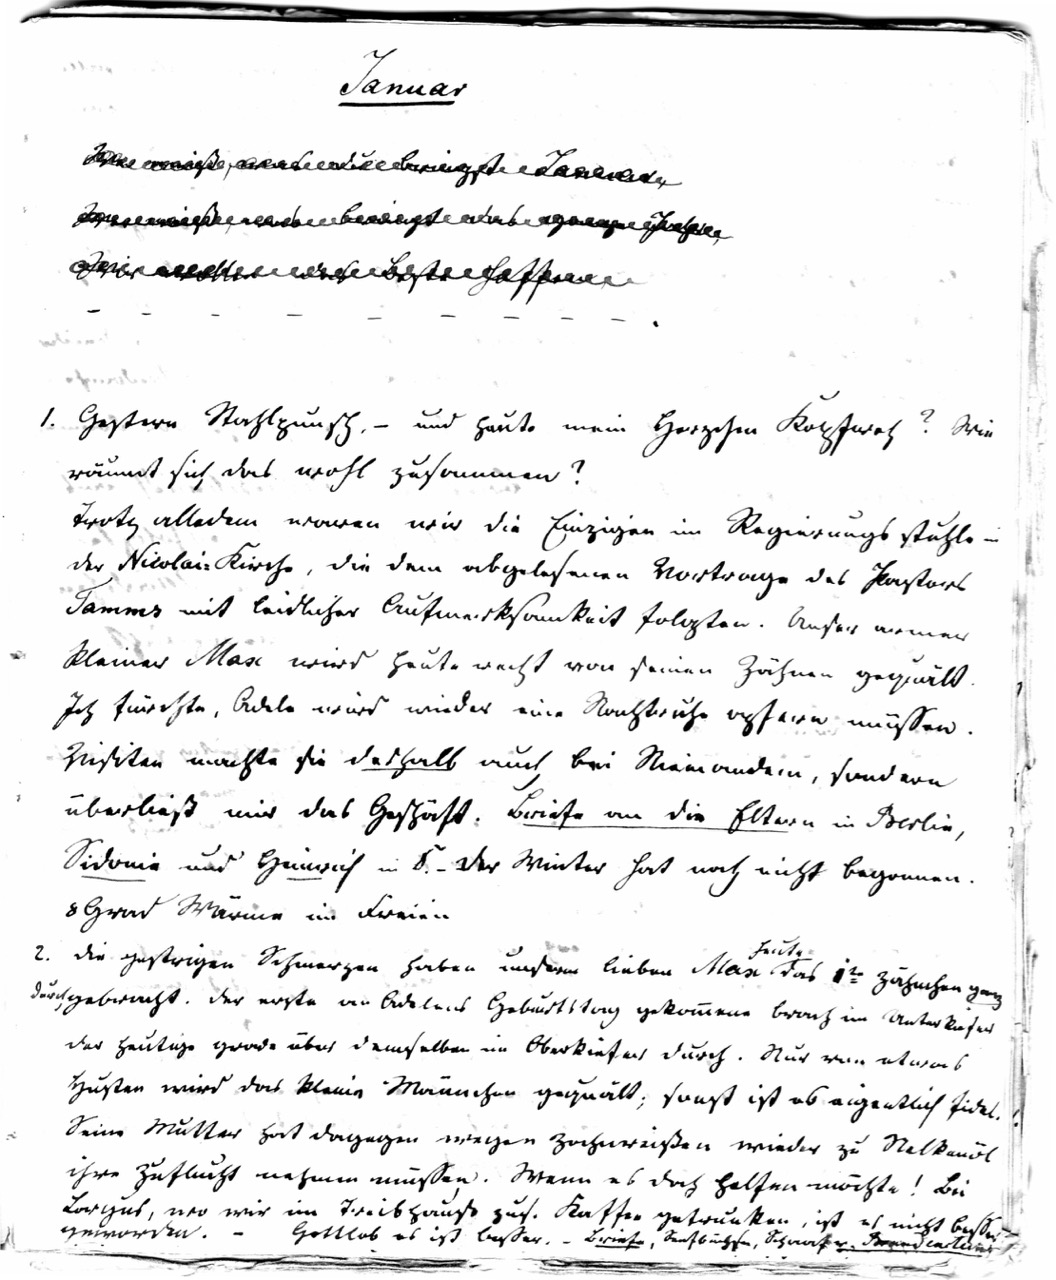 Januar
Wer weiß, was du bringst Januar,
Wer weiß, was bringt das ganze Jahr,
Wir wollen das Beste hoffen
1. Gestern Stahlpunsch, – und heute mein Herzchen Kopfweh? Wie
räumt sich das wohl zusammen?
Trotz alledem waren wir die Einzigen im Regierungsstuhle –
der Nicolai-Kirche, die dem abgelesenen Vortrage des Pastors
Tamms mit leidlicher Aufmerksamkeit folgten. Unser armer
kleiner Max wird heute recht von seinen Zähnen gequält.
Ich fürchte, Adele wird wieder eine Nachtruhe opfern müssen.
Visiten machte sie deshalb auch bei Niemandem, sondern
überließ mir das Geschäft. Briefe an die Eltern in Berlin,
Sidonie und Heinrich in S. – Der Winter hat noch nicht begonnen.
8 Grad Wärme im Freien
2. Die gestrigen Schmerzen haben unserm lieben Max heute das Zähnchen ganz
durchgebracht. Der erste an Adelens Geburtstag gekom̄ene brach im Unterkiefer
der heutige grade über demselben im Oberkiefer durch. Nur von etwas
Husten wird das kleine Männchen gequält; sonst ist es eigentlich fidel.
Seine Mutter hat dagegen wegen Zahnreißen wieder zu Nelkenöl
ihre Zuflucht nehmen müssen. Wenn es doch helfen möchte! Bei
wo wir im Treibhause zus. Kaffee getrunken, ist es nicht besser
geworden. – Gottlob es ist besser. – Briefe,